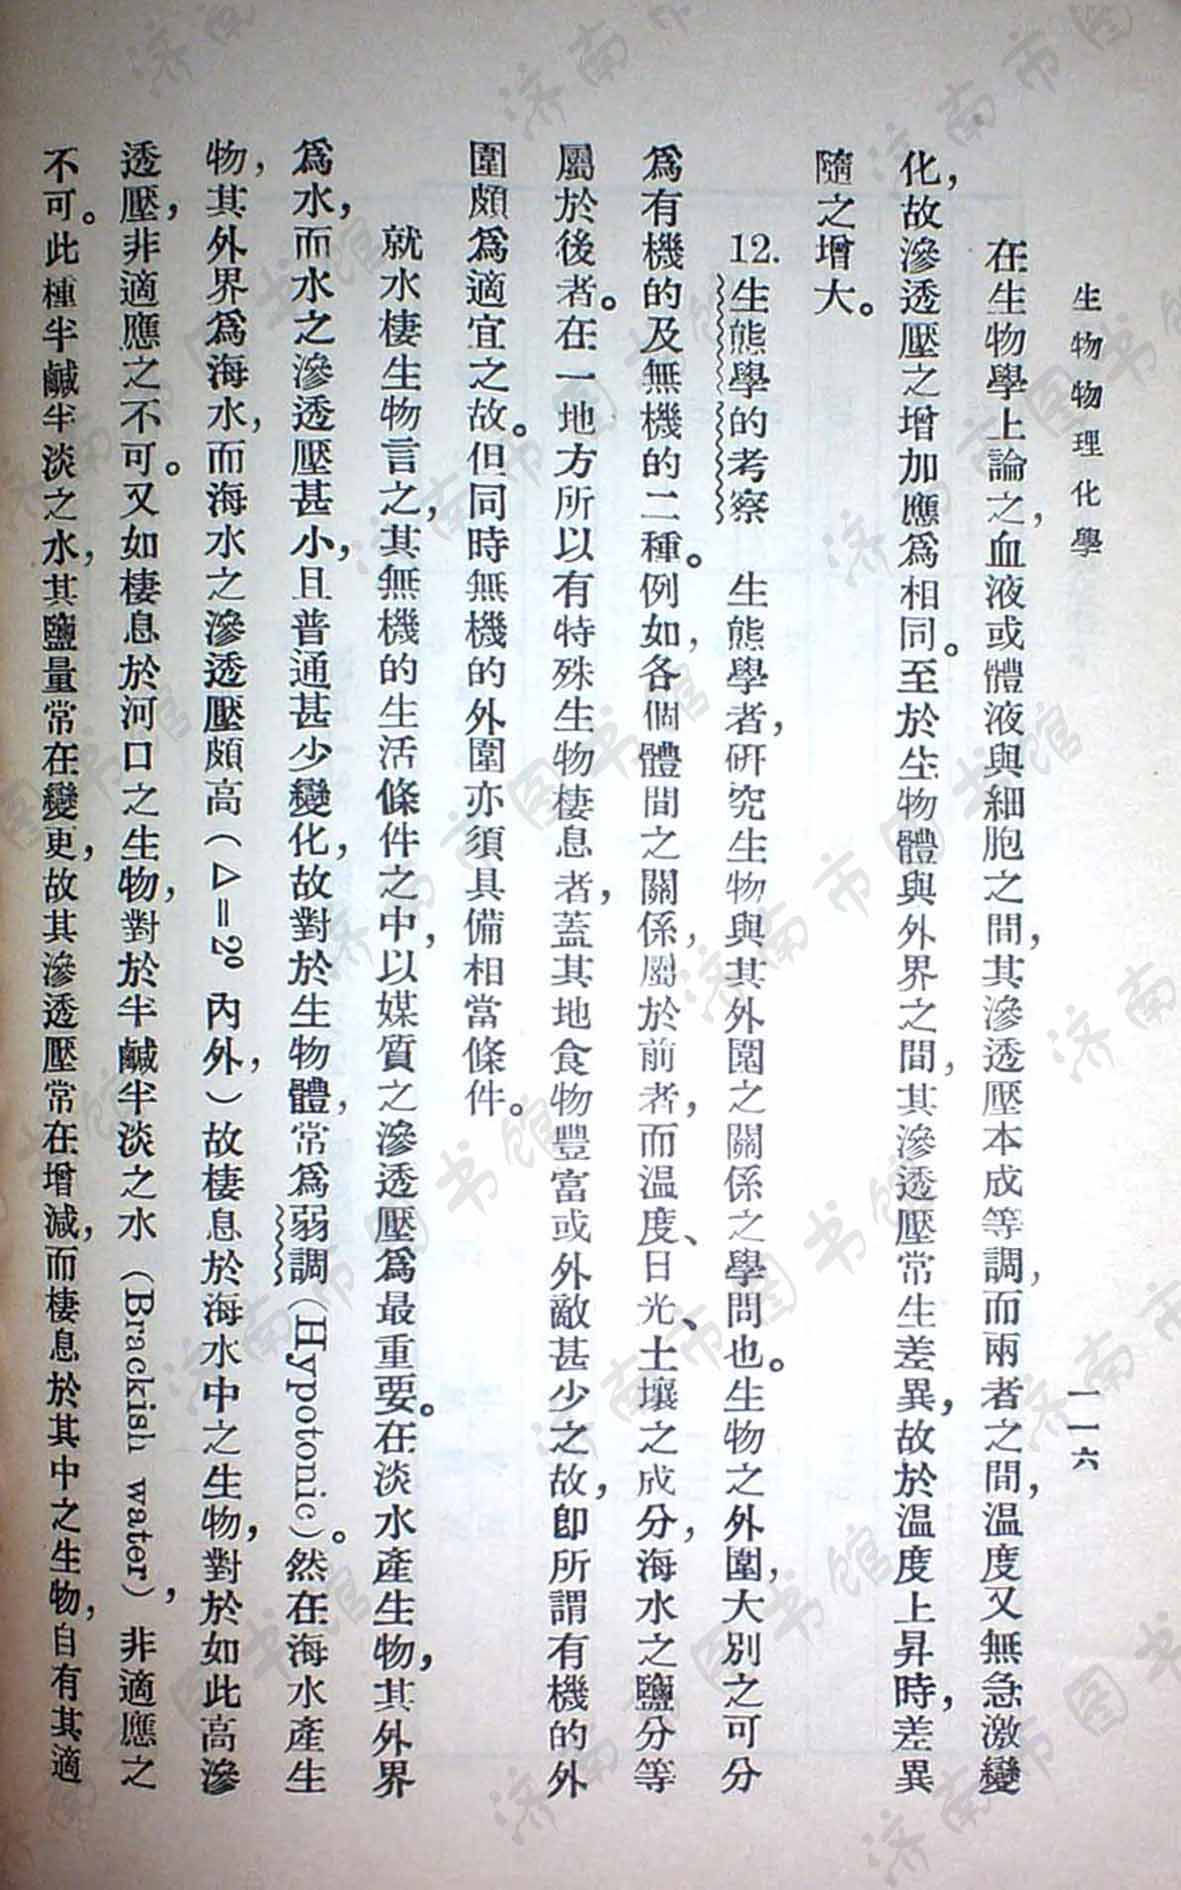 生物物理化學
一一六
在生物學上論之，血液或體液與細胞之間，其滲透壓本成等調，而兩者之間，溫度又無急激變
化，故滲透壓之增加應爲相同。至於生物體與外界之間，其滲透壓常生差異，故於溫度上昇時，差異
隨之增大。
12. 生態學的考察　生態學者，研究生物與其外圍之關係之學問也。生物之外圍，大別之可分
爲有機的及無機的二種。例如，各個體間之關係，屬於前者，而溫度、日光、土壤之成分，海水之鹽分等
屬於後者。在一地方所以有特殊生物棲息者，蓋其地食物豐富或外敵甚少之故，卽所謂有機的外
圍頗爲適宜之故。但同時無機的外圍亦須具備相當條件。
就水棲生物言之，其無機的生活條件之中，以媒質之滲透壓爲最重要。在淡水產生物，其外界
爲水，而水之滲透壓甚小，且普通甚少變化，故對於生物體，常爲弱調（Hypotonic）。然在海水產生
物，其外界爲海水，而海水之滲透壓頗高（△=2°內外，）故棲息於海水中之生物，對於如此高滲
透壓，非適應之不可。又如棲息於河口之生物，對於半鹹半淡之水（Brackish water），非適應之
不可。此種半鹹半淡之水，其鹽量常在變更，故其滲透壓常在增減，而棲息於其中之生物，自有其適
济南市图书馆